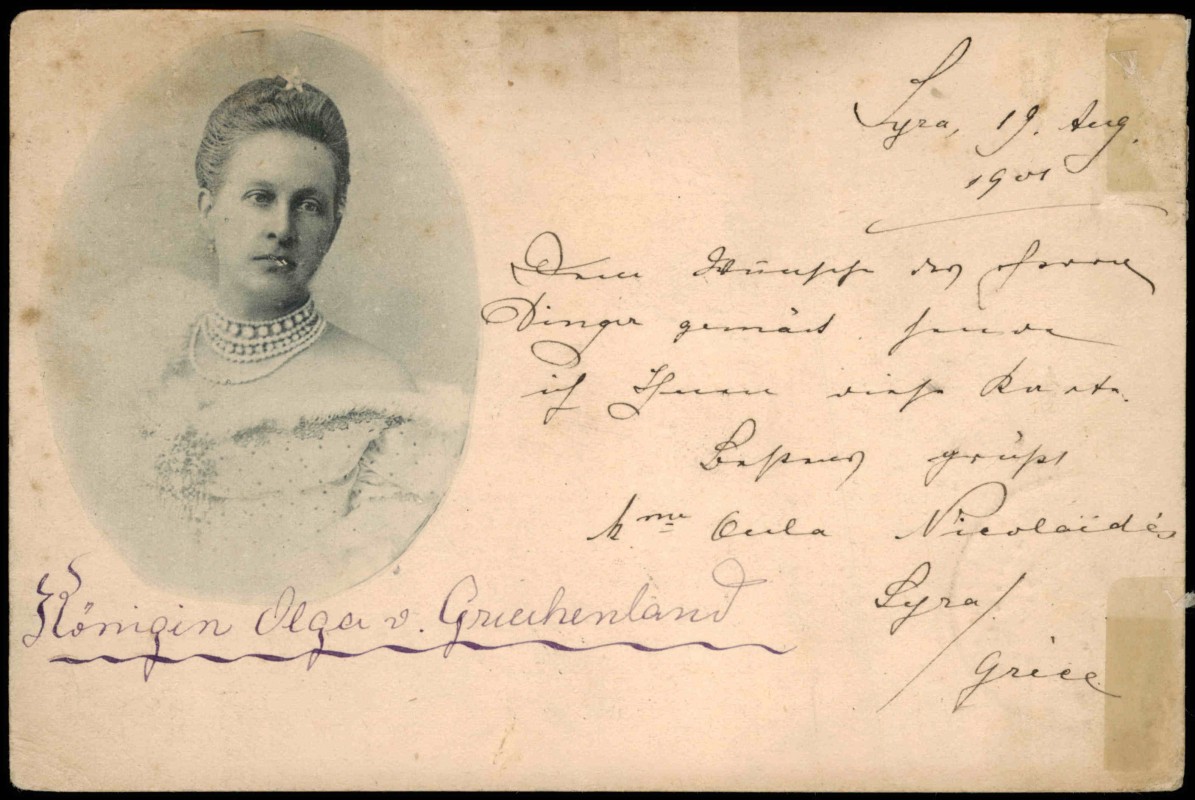 Syra, 19. Aug.
1901
Dem Wunsche des Herrn
Dinger gemäss sende
ich Ihnen diese Karte.
Bestens grüsst
Mme Eula Nicolaïdès
Syra/
Grèce
Königin Olga v. Griechenland